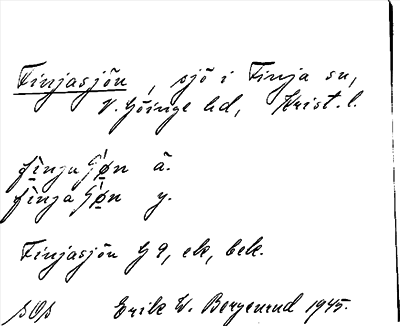 Finjasjön, sjö i Finja sn,
V. Göinge hd, Krist. l.
fìnja ʃǿn ä.
fìnja ʃǿn y.
Finjasjön G 9, ek, bek.
Erik W. Bergenrud 1945.